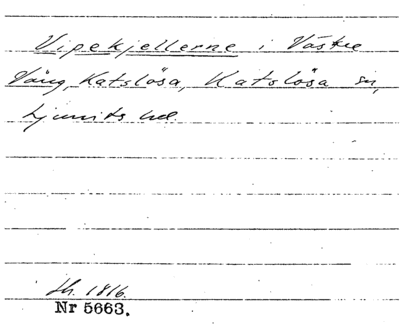 Vipekjellerne i Västre
Vång, Katslösa, Katslösa sn,
Ljunits hd.
Sk. 1816.
Nr 5663.